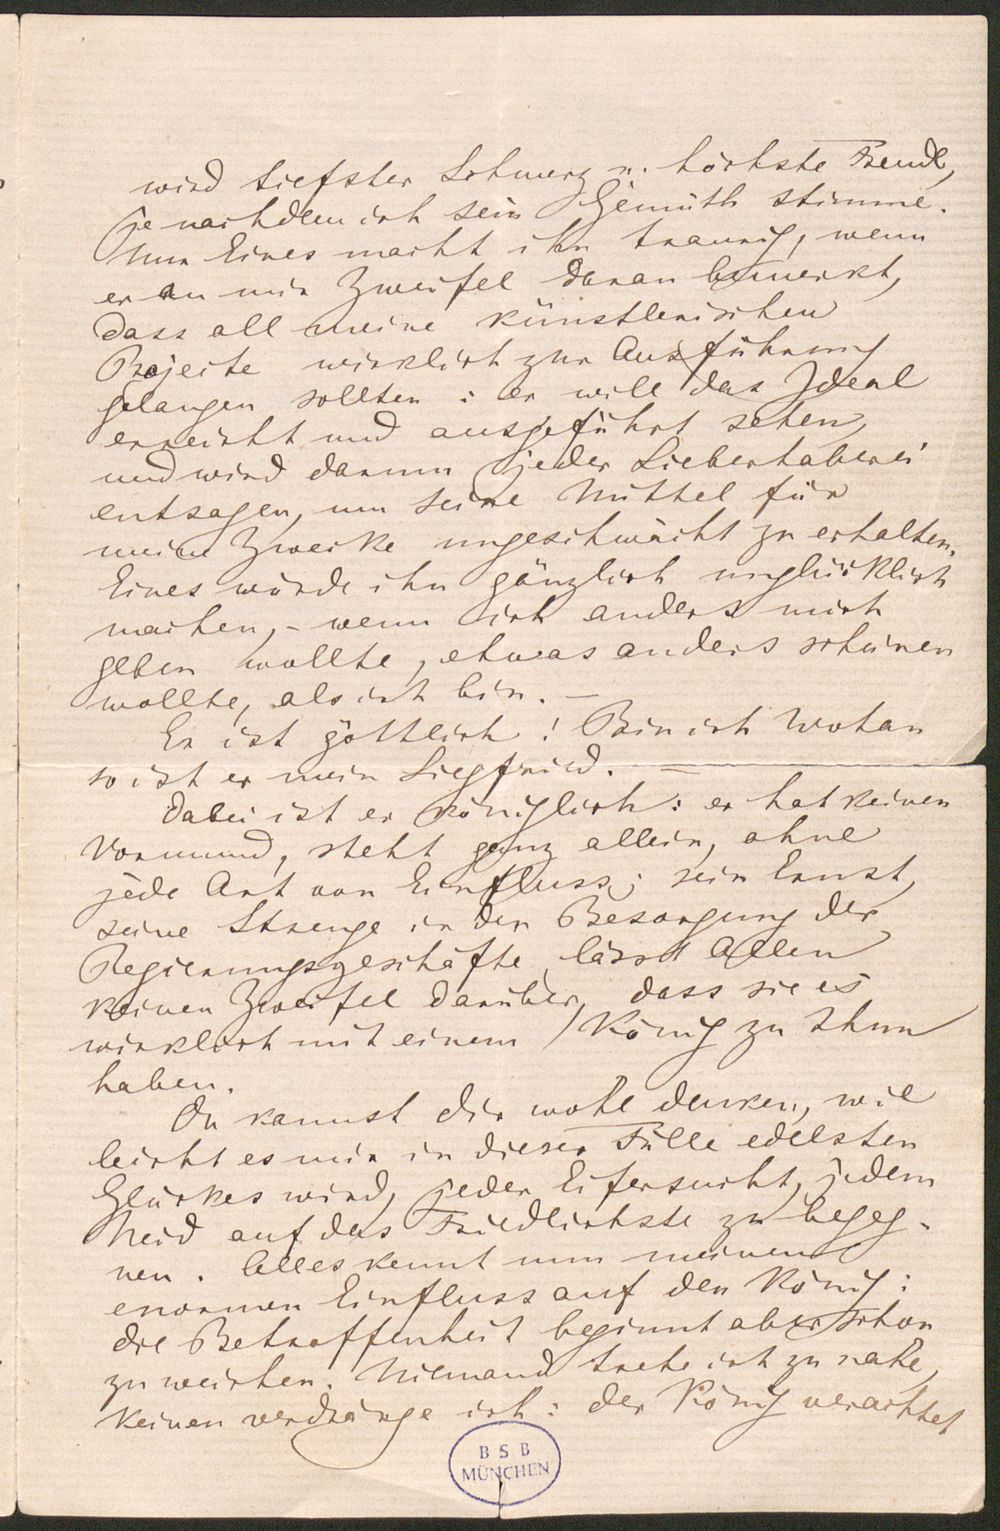 wird tiefster Schmerz u. höchste Freude,
je nachdem ich sein Gemüth stimme.
Nur Eines macht ihn traurig, wenn
er an mir Zweifel daran bemerkt,
dass all meine künstlerischen
Projecte wirklich zur Ausführung
gelangen sollten: er will das Ideal
erreicht und ausgeführt sehen,
und wird darum jeder Liebhaberei
entsagen, um seine Mittel für
meine Zwecke ungeschwächt zu erhalten.
Eines würde ihn gänzlich unglücklich
machen, – wenn ich anders mich
geben wollte, etwas anders scheinen
wollte, als ich bin. –
Er ist göttlich! Bin ich Wotan
so ist er mein Siegfried. –
Dabei ist er königlich: er hat keinen
Vormund, steht ganz allein, ohne
jede Art von Einfluss; sein Ernst,
seine Strenge in der Besorgung der
Regierungsgeschäfte lässt Allen
keinen Zweifel darüber, dass sie es
wirklich mit einem König zu thun
haben.
Du kannst dir wohl denken, wie
leicht es mir in dieser Fülle edelsten
Glückes wird, jeder Eifersucht, jedem
Neid auf das Friedlichste zu begeg-
nen. Alles kennt nun meinen
enormen Einfluss auf den König:
die Betroffenheit beginnt aber schon
zu weichen. Niemand trete ich zu nahe,
keinen verdränge ich: der König verachtet
BSB
MÜNCHEN